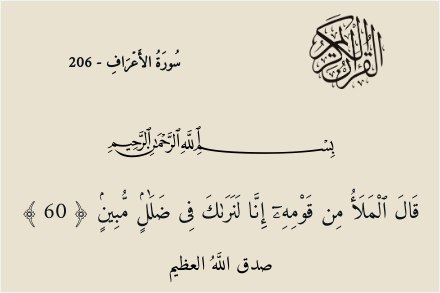 القرآن الكريم
سُورَةُ الأَعْرَافِ - 206
بِسْمِ ٱللَّهِ ٱلرَّحْمَٰنِ ٱلرَّحِيمِ
قَالَ ٱلْمَلَأُ مِن قَوْمِهِۦٓ إِنَّا لَنَرَىٰكَ فِى ضَلَٰلٍۢ مُّبِينٍۢ ﴿ 60 ﴾
صدق اللَّهُ العظيم